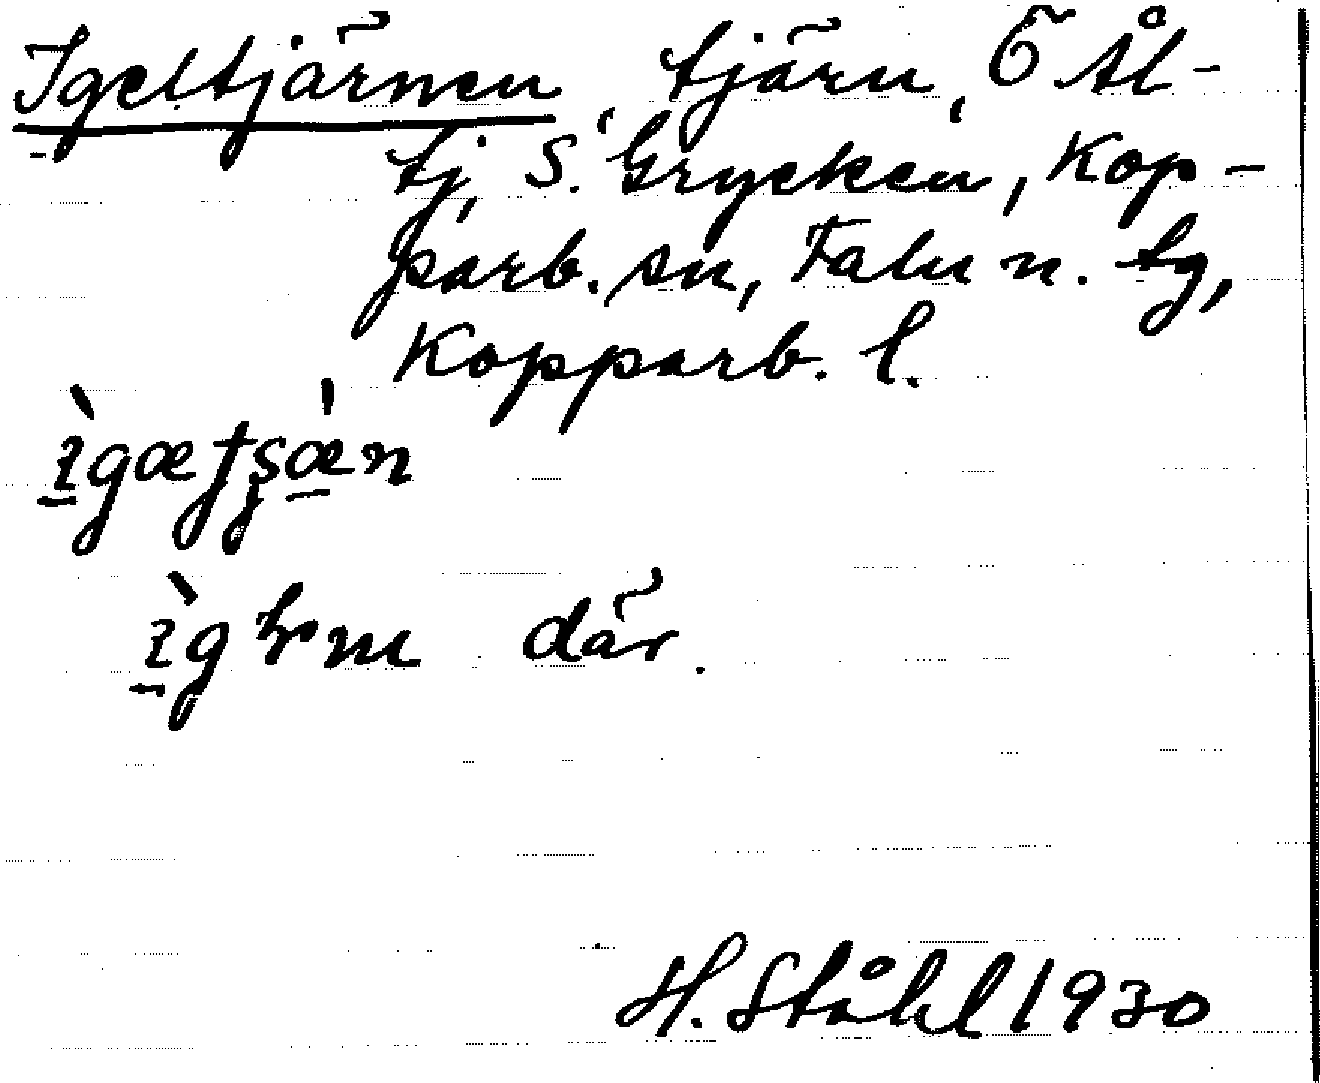 Igeltjärnen, tjärn, Ö Ål-
tj, S. Grycken, Kop-
parb. sn, Falu n. tg,
Kopparb. l.
där.
H. Ståhl 1930